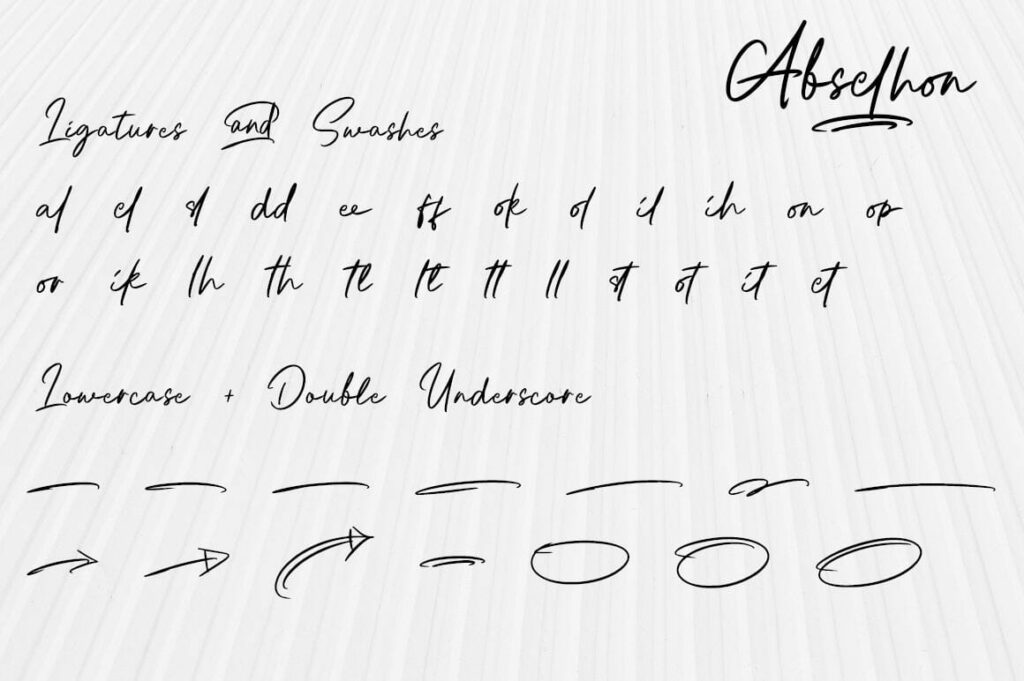 Abselhon
Ligatures and Swashes
al el sl dd ee ff ok ol il ih on op
or ik lh th tl lt tt ll st ot it et
Lowercase + Double Underscore